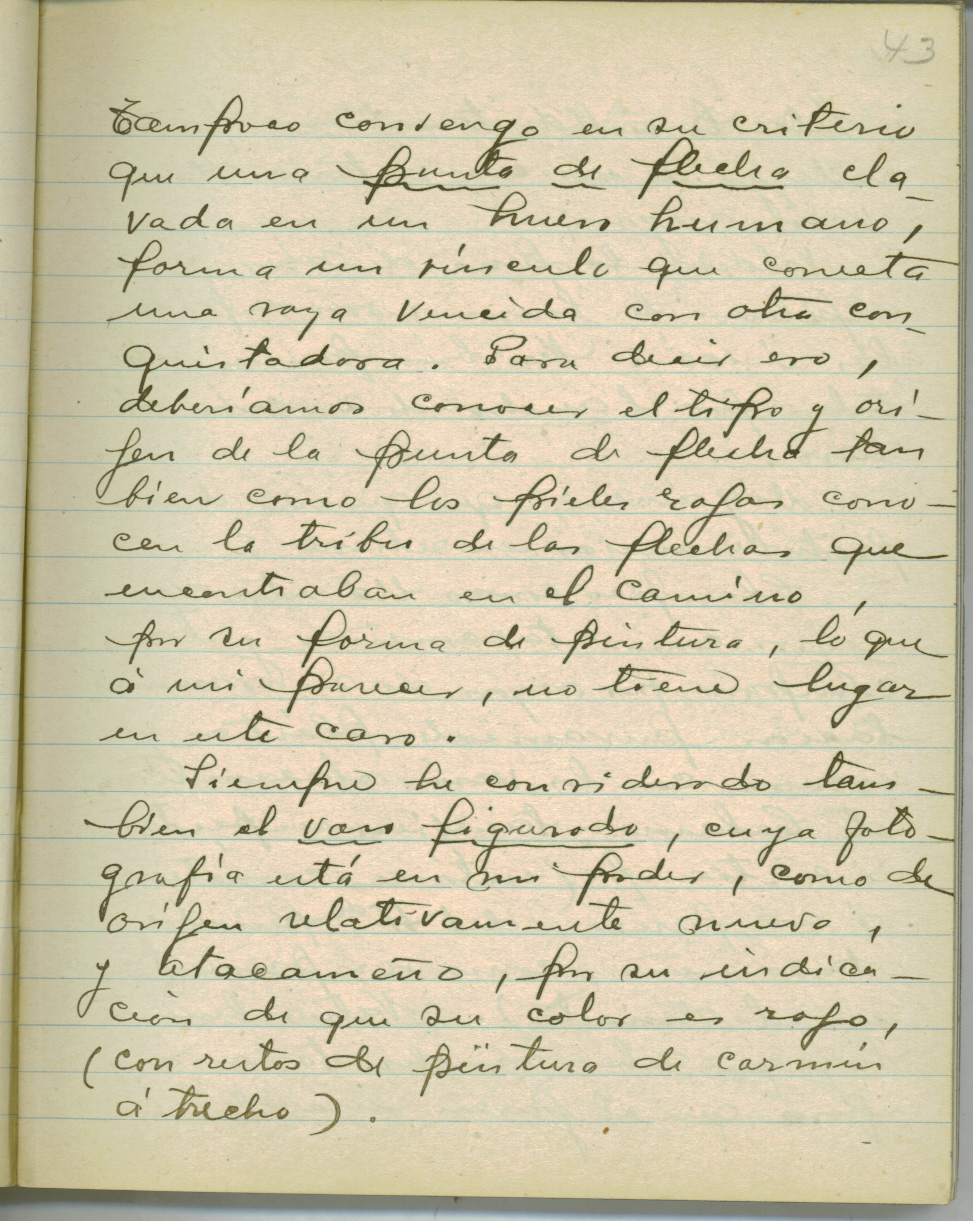 43
Tampoco convengo en su criterio
que una punta de flecha cla-
vada en un hueso humano,
forma un vínculo que conecta
una raza vencida con otra con-
quistadora. Para decir eso,
deberíamos conocer el tipo y orí-
jen de la punta de flecha tan
bien como los pieles rojas cono-
cen la tribu de las flechas que
encontraban en el camino,
por su forma de pintura, lo que
á mi parecer, no tiene lugar
en este caso.
Siempre he considerado tam-
bien el vaso figurado, cuya foto-
grafía está en mi poder, como de
oríjen relativamente nuevo,
y atacameño, por su indica-
ción de que su color es rojo,
(con restos de pintura de carmín
á trecho).